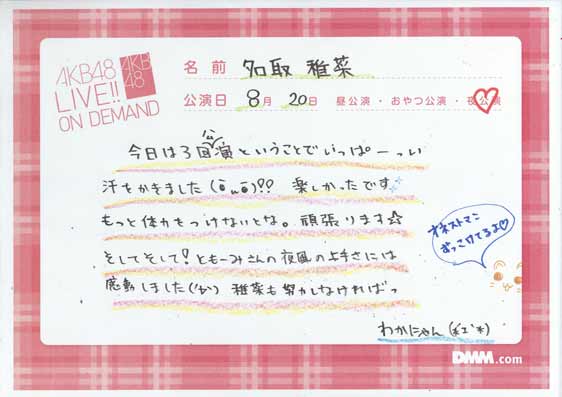 AKB48
LIVE!!
ON DEMAND
AKB
48
名前 名取 稚菜
公演日 8月 20日 昼公演・おやつ公演・夜公演
今日は3回公演ということでいっぱーっい
汗をかきました(ōωō)!!? 楽しかったです
もっと体力をつけないとな。頑張ります☆
そしてそして!ともーみさんの夜風の上手さには
感動しました 稚菜も努力しなければっ
わかにゃん(*ェ*)
オネストマン
おっこけてるよ♡
DMM.com